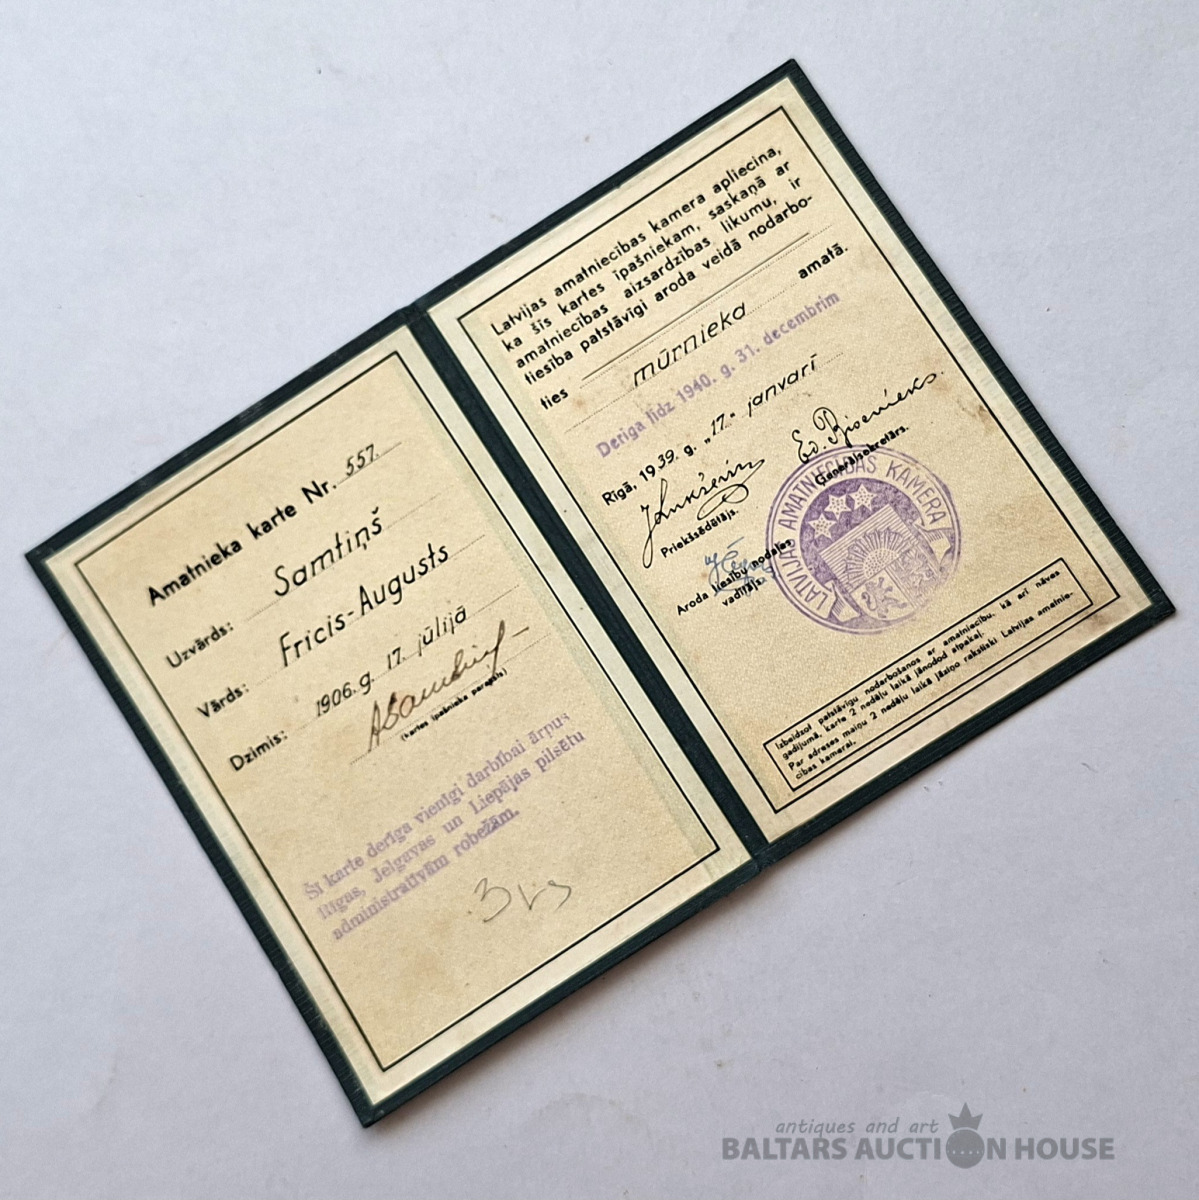 Amatnieka karte Nr. 557.
Uzvārds: Samtiņš
Vārds: Fricis-Augusts
Dzimis: 1906. g. 17. jūlijā
(kartes īpašnieka paraksts)
Šī karte derīga vienīgi darbībai ārpus
Rīgas, Jelgavas un Liepājas pilsētu
administratīvām robežām.
Latvijas amatniecības kamera apliecina,
ka šīs kartes īpašniekam, saskaņā ar
amatniecības aizsardzības likumu, ir
tiesība patstāvīgi aroda veidā nodarbo-
ties mūrnieka amatā.
Derīga līdz 1940. g. 31. decembrim
Rīgā, 1939. g. „17.” janvarī
Priekšsēdētājs.
Ģenerālsekretārs.
Aroda tiesību nodaļas
vadītājs.
LATVIJAS AMATNIECĪBAS KAMERA
Izbeidzot patstāvīgu nodarbošanos ar amatniecību, kā arī nāves
gadījumā, karte 2 nedēļu laikā jānodod atpakaļ.
Par adreses maiņu 2 nedēļu laikā jāziņo rakstiski Latvijas amatnie-
cības kamerai.
antiques and art
BALTARS AUCTION HOUSE